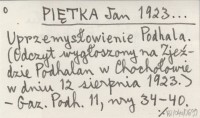 PIĘTKA Jan 1923...
Uprzemysłowienie Podhala.
(Odczyt wygłoszony na Zjeź-
dzie Podhalan w Chochołowie
w dniu 12 sierpnia 1923.)
– Gaz. Podh. 11, nry 34-40.